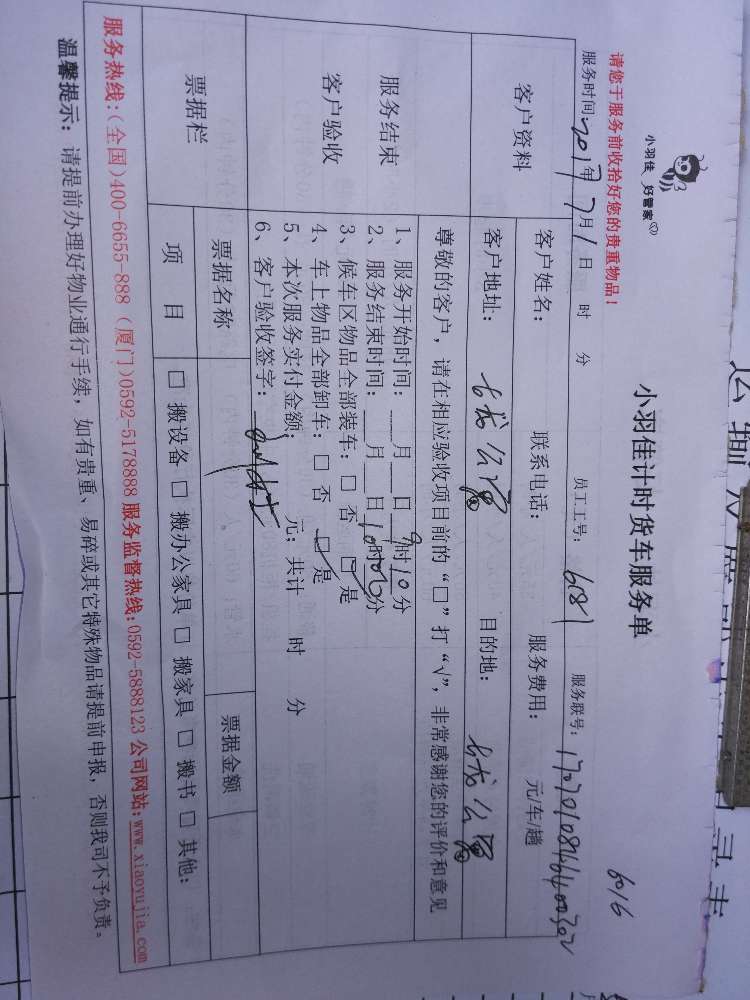 小羽佳 好管家
6016
小羽佳计时货车服务单
请您于服务前收拾好您的贵重物品!
服务时间: 2017年 7月 1日 时 分 员工工号: 6081 服务联号:
客户资料
客户姓名: 联系电话: 服务费用: 元/车/趟
客户地址: 目的地:
服务结束
客户验收
尊敬的客户,请在相应验收项目前的“□”打“√”,非常感谢您的评价和意见
1、服务开始时间:__月__日 9时10分
2、服务结束时间:__月__日10时00分
3、候车区物品全部装车:□ 否 □ 是
4、车上物品全部卸车:□ 否 □ 是
5、本次服务实付金额: 元;共计 时 分
6、客户验收签字:
票据栏
票据名称 票据金额
项 目 □ 搬设备 □ 搬办公家具 □ 搬家具 □ 搬书 □ 其他:
服务热线:(全国)400-6655-888 (厦门)0592-5178888 服务监督热线:0592-5888123 公司网站:www.xiaoyujia.com
温馨提示:请提前办理好物业通行手续,如有贵重、易碎或其它特殊物品请提前申报,否则我司不予负责。